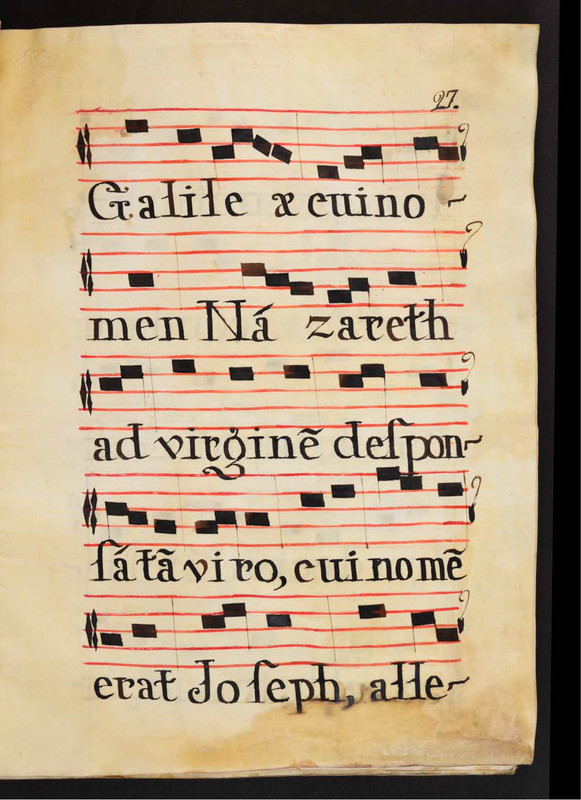 27.
Galile æ cui no -
men Ná zareth
ad virginẽ deſpon-
ſátã viro, cui no mẽ
erat Joſeph, alle-